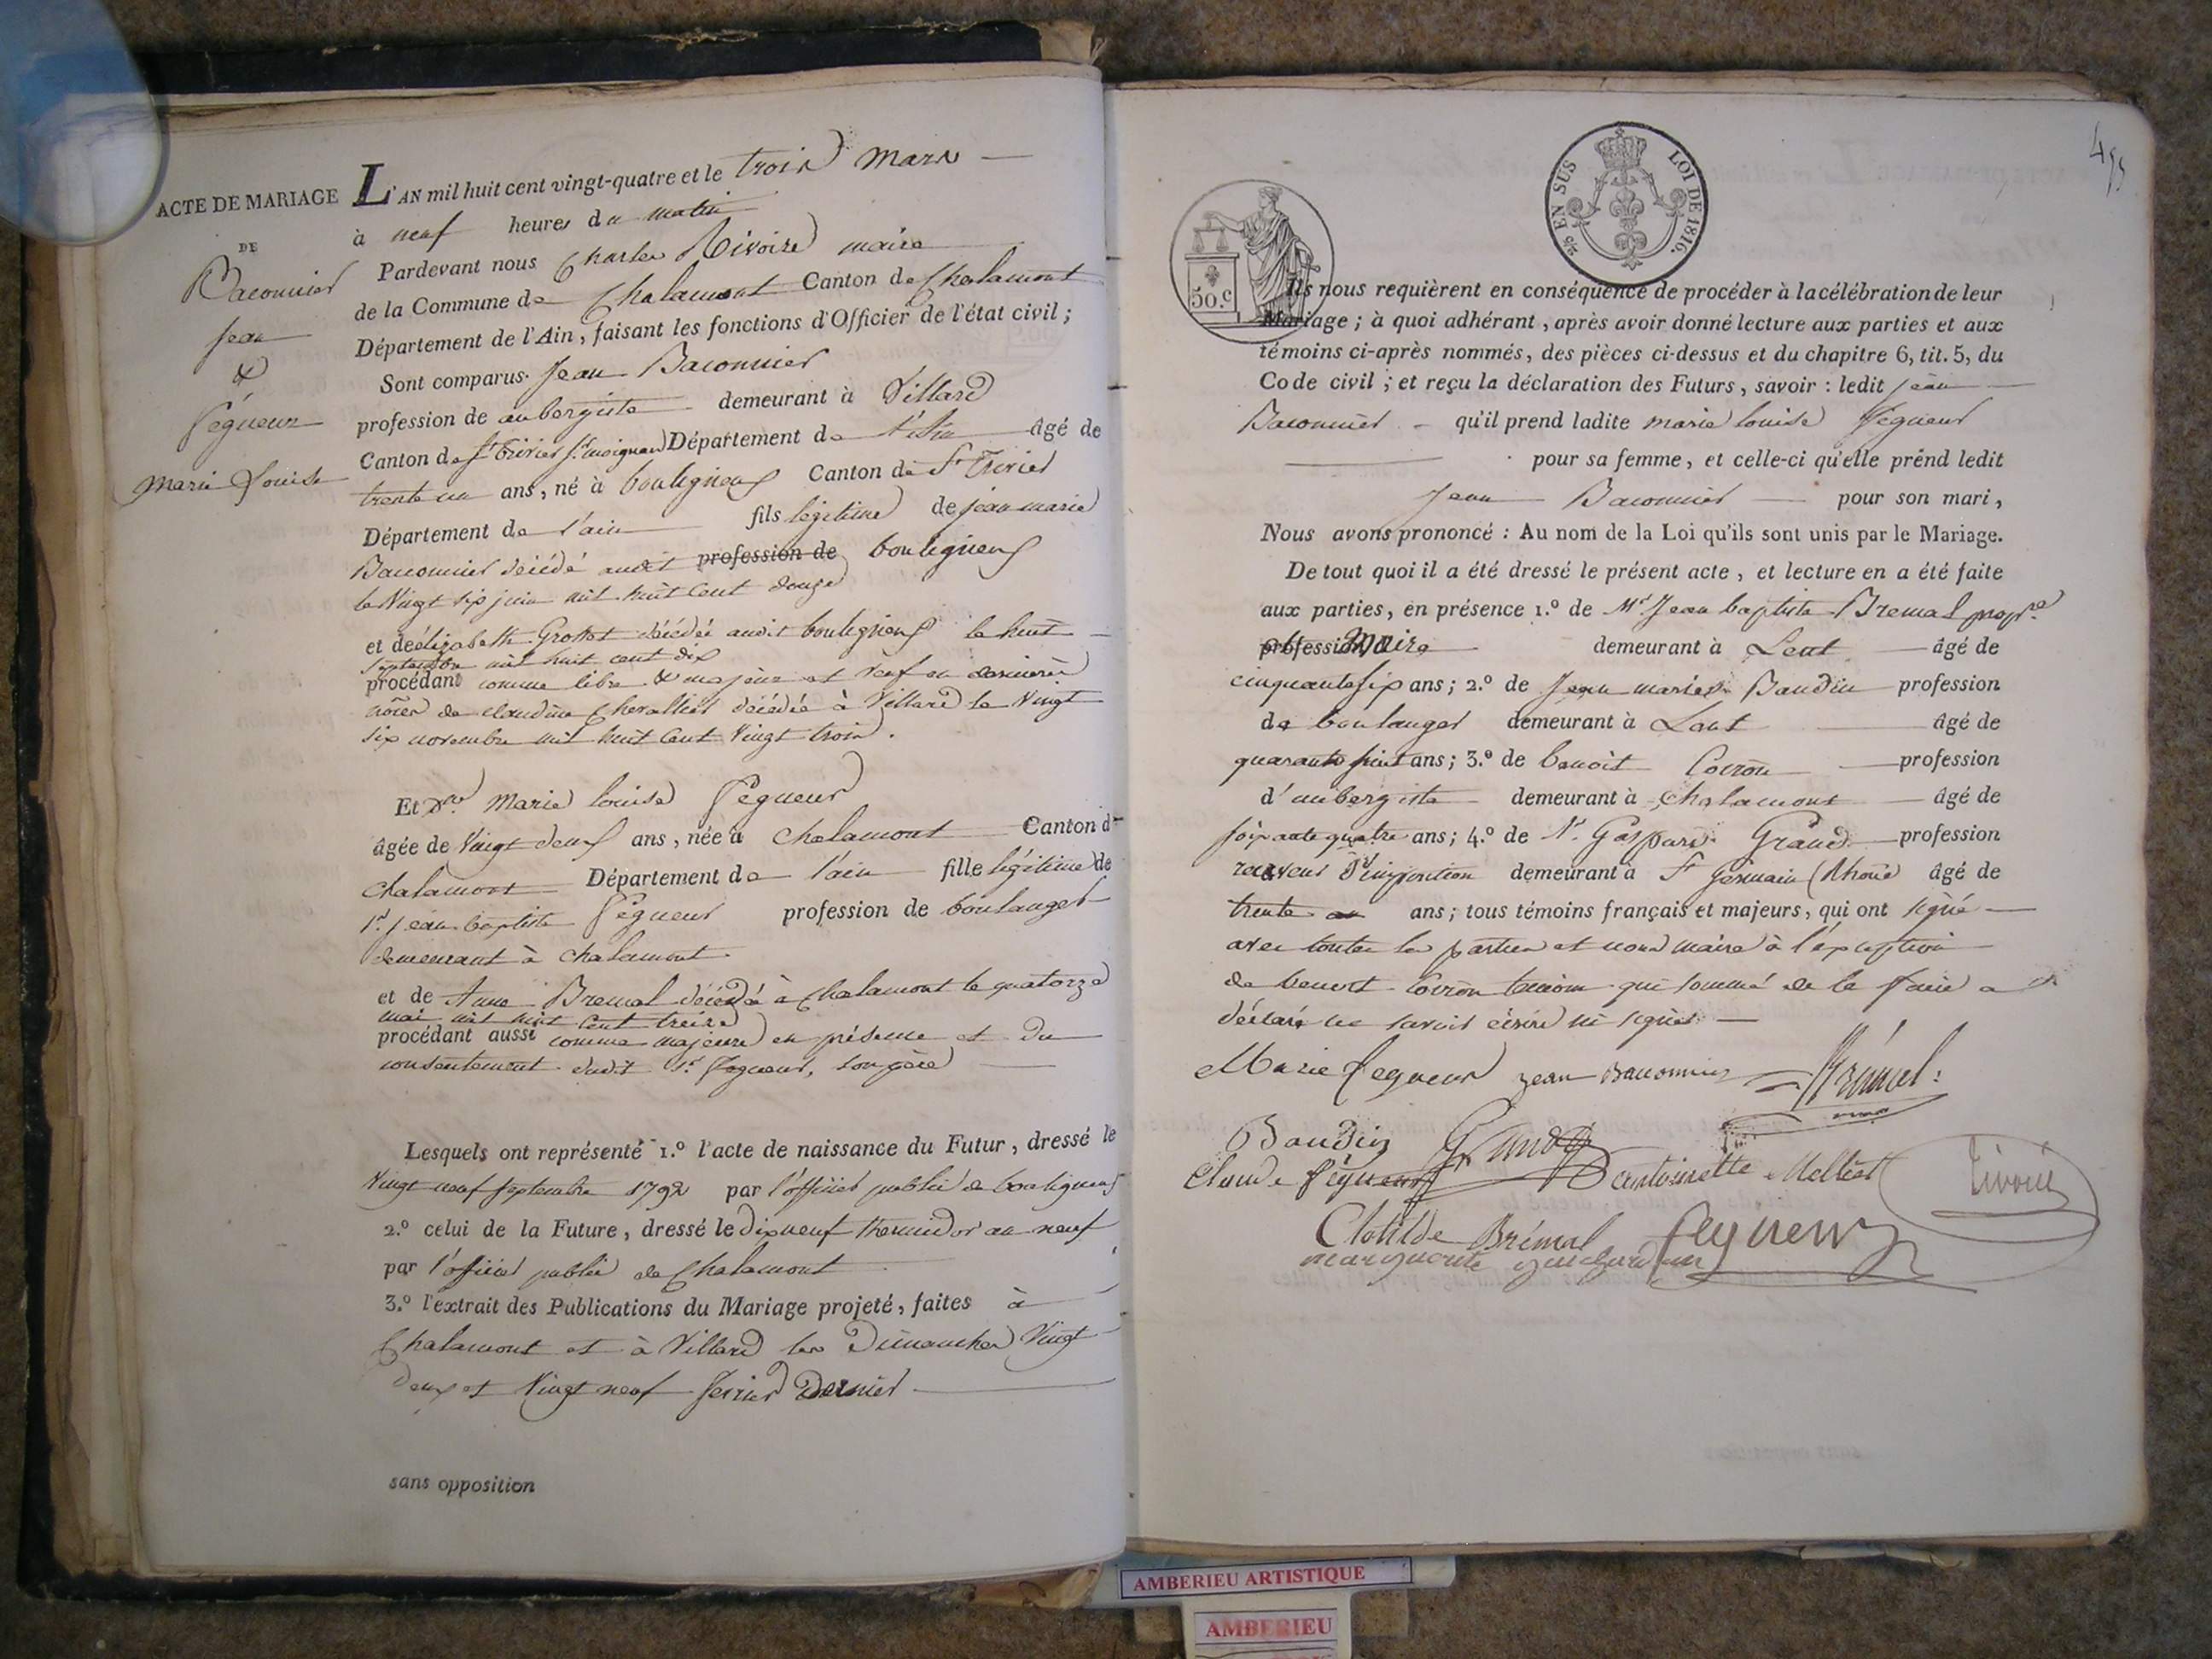 ACTE DE MARIAGE
DE
Baconnier
Jean
&
Pégueur
Marie Louise
L'AN mil huit cent vingt-quatre et le trois Mars
à neuf heures du matin
Pardevant nous Charles Rivoire maire
de la Commune de Chalamont Canton de Chalamont
Département de l'Ain, faisant les fonctions d'Officier de l'état civil ;
Sont comparus. Jean Baconnier
profession de aubergiste demeurant à Villard
Canton de St Trivier Sr moignan Département de l'Ain âgé de
trente un ans, né à bouligneux Canton de St Trivier
Département de l'ain fils légitime de jean marie
Baconnier décédé audit profession de bouligneux
le Vingt six juin mil huit Cent douze
et de élizabeth Grosset décédée audit bouligneux le huit
septembre mil huit cent dix
procédant comme libre & majeur et veuf en dernières
nôces de claudine Chevallier décédée à Villard le Vingt
six novembre mil huit Cent Vingt trois.
Et Dlle Marie louise Pégueur
âgée de Vingt deux ans, née à Chalamont Canton de
Chalamont Département de l'ain fille légitime de
Sr. jean baptiste Pégueur profession de boulanger
demeurant à Chalamont
et de Anne Bremal décédée à Chalamont le quatorze
mai mil huit Cent treize
procédant aussi comme majeure en présence et du
consentement dudit Sr. Pégueur, son père
Lesquels ont représenté 1.º l'acte de naissance du Futur, dressé le
Vingt neuf septembre 1792 par l'officier public de bouligneux
2.º celui de la Future, dressé le dixneuf thermidor an neuf
par l'officier public de Chalamont
3.º l'extrait des Publications du Mariage projeté, faites à
Chalamont et à Villard les Dimanches Vingt
deux et Vingt neuf fevrier Dernier
sans opposition
455
5/c EN SUS LOI DE 1816.
50.c
Ils nous requièrent en conséquence de procéder à la célébration de leur
Mariage ; à quoi adhérant, après avoir donné lecture aux parties et aux
témoins ci-après nommés, des pièces ci-dessus et du chapitre 6, tit. 5, du
Code civil ; et reçu la déclaration des Futurs, savoir : ledit jean
Baconnier qu'il prend ladite marie louise Pégueur
pour sa femme, et celle-ci qu'elle prend ledit
Jean Baconnier pour son mari,
Nous avons prononcé : Au nom de la Loi qu'ils sont unis par le Mariage.
De tout quoi il a été dressé le présent acte, et lecture en a été faite
aux parties, en présence 1.º de Mr Jean baptiste Bremal propre
profession Maire demeurant à Lent âgé de
cinquante six ans ; 2.º de Jean marie Baudin profession
de boulanger demeurant à Lent âgé de
quarante huit ans ; 3.º de benoit Coiron profession
d'aubergiste demeurant à Chalamont âgé de
soixante quatre ans ; 4.º de Sr Gaspard Grand profession
receveur d'imposition demeurant à St Germain (Rhône) âgé de
trente ans ; tous témoins français et majeurs, qui ont signé
avec toutes les parties et nous maire à l'exception
de benoit Coiron témoin qui sommé de le faire a
déclaré ne savoir écrire ni signer
Marie Pegueur jean Baconnier Brémal
Baudin Grand
Claude Pégueur antoinette Melliet Rivoire
Clotilde Brémal Pegueur
marguerite
AMBERIEU ARTISTIQUE
AMBERIEU